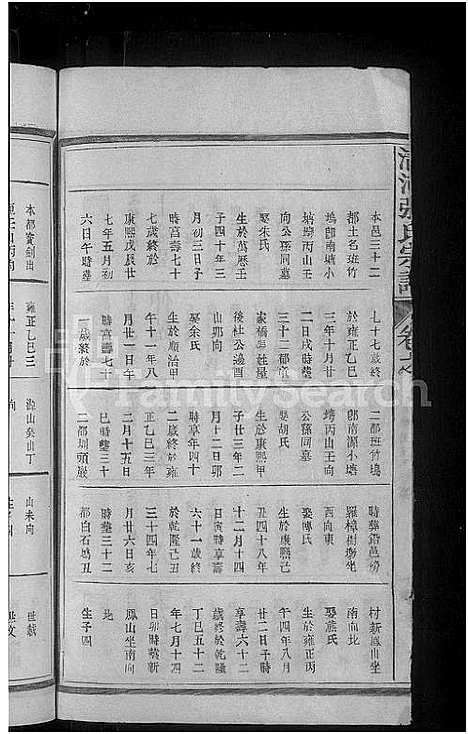 清河張氏宗譜
卷之
本邑三十二
都土名班竹
塢卽南塘小
塘塝丙山壬
向公孫同墓
娶朱氏
生於萬歷壬
子四十年三
月初三日子
時享壽七十
七歲終於
康熙戊辰廿
七年五月初
六日午時塟
七十七歲終
於雍正乙巳
三年十月廿
二日戌時塟
三十二都官
家橋 牲屋
後杜公 酉
山卯向
娶余氏
生於順治甲
午十一年八
月廿一日午
時享壽七十
二歲終於
二都班竹塢
卽南源小塘
塝丙山壬向
公孫同墓
娶胡氏
生於康熙甲
子廿三年二
月十二日卯
時享年四十
二歲終於雍
正乙巳三年
二月十五日
巳時塟三十
二都圳頭嚴
時葬 邑
羅樟樹塲坐
西向東
娶傅氏
生於康熙己
丑四十八年
十二月十四
日寅時享壽
六十一歲終
於乾隆己丑
三十四年七
月廿六日亥
時塟三十二
都白石塢丑
村新鳳山坐
南向北
娶熊氏
生於雍正丙
午四年八月
廿二日子時
享壽六十二
歲終於乾隆
丁巳五十二
年七月十四
日卯時塟新
鳳山坐南向
北
生子四
本都寶劍出
雍正乙巳三
源山癸山丁
山未向
世猷
FamilySearch